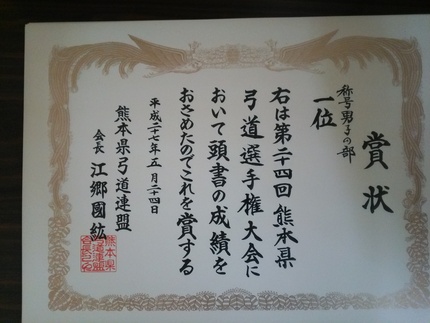 賞状
称号男子の部
一位
右は第二十四回熊本県
弓道選手権大会に
おいて頭書の成績を
おさめたのでこれを賞する
平成二十七年五月二十四日
熊本県弓道連盟
会長 江郷國紘